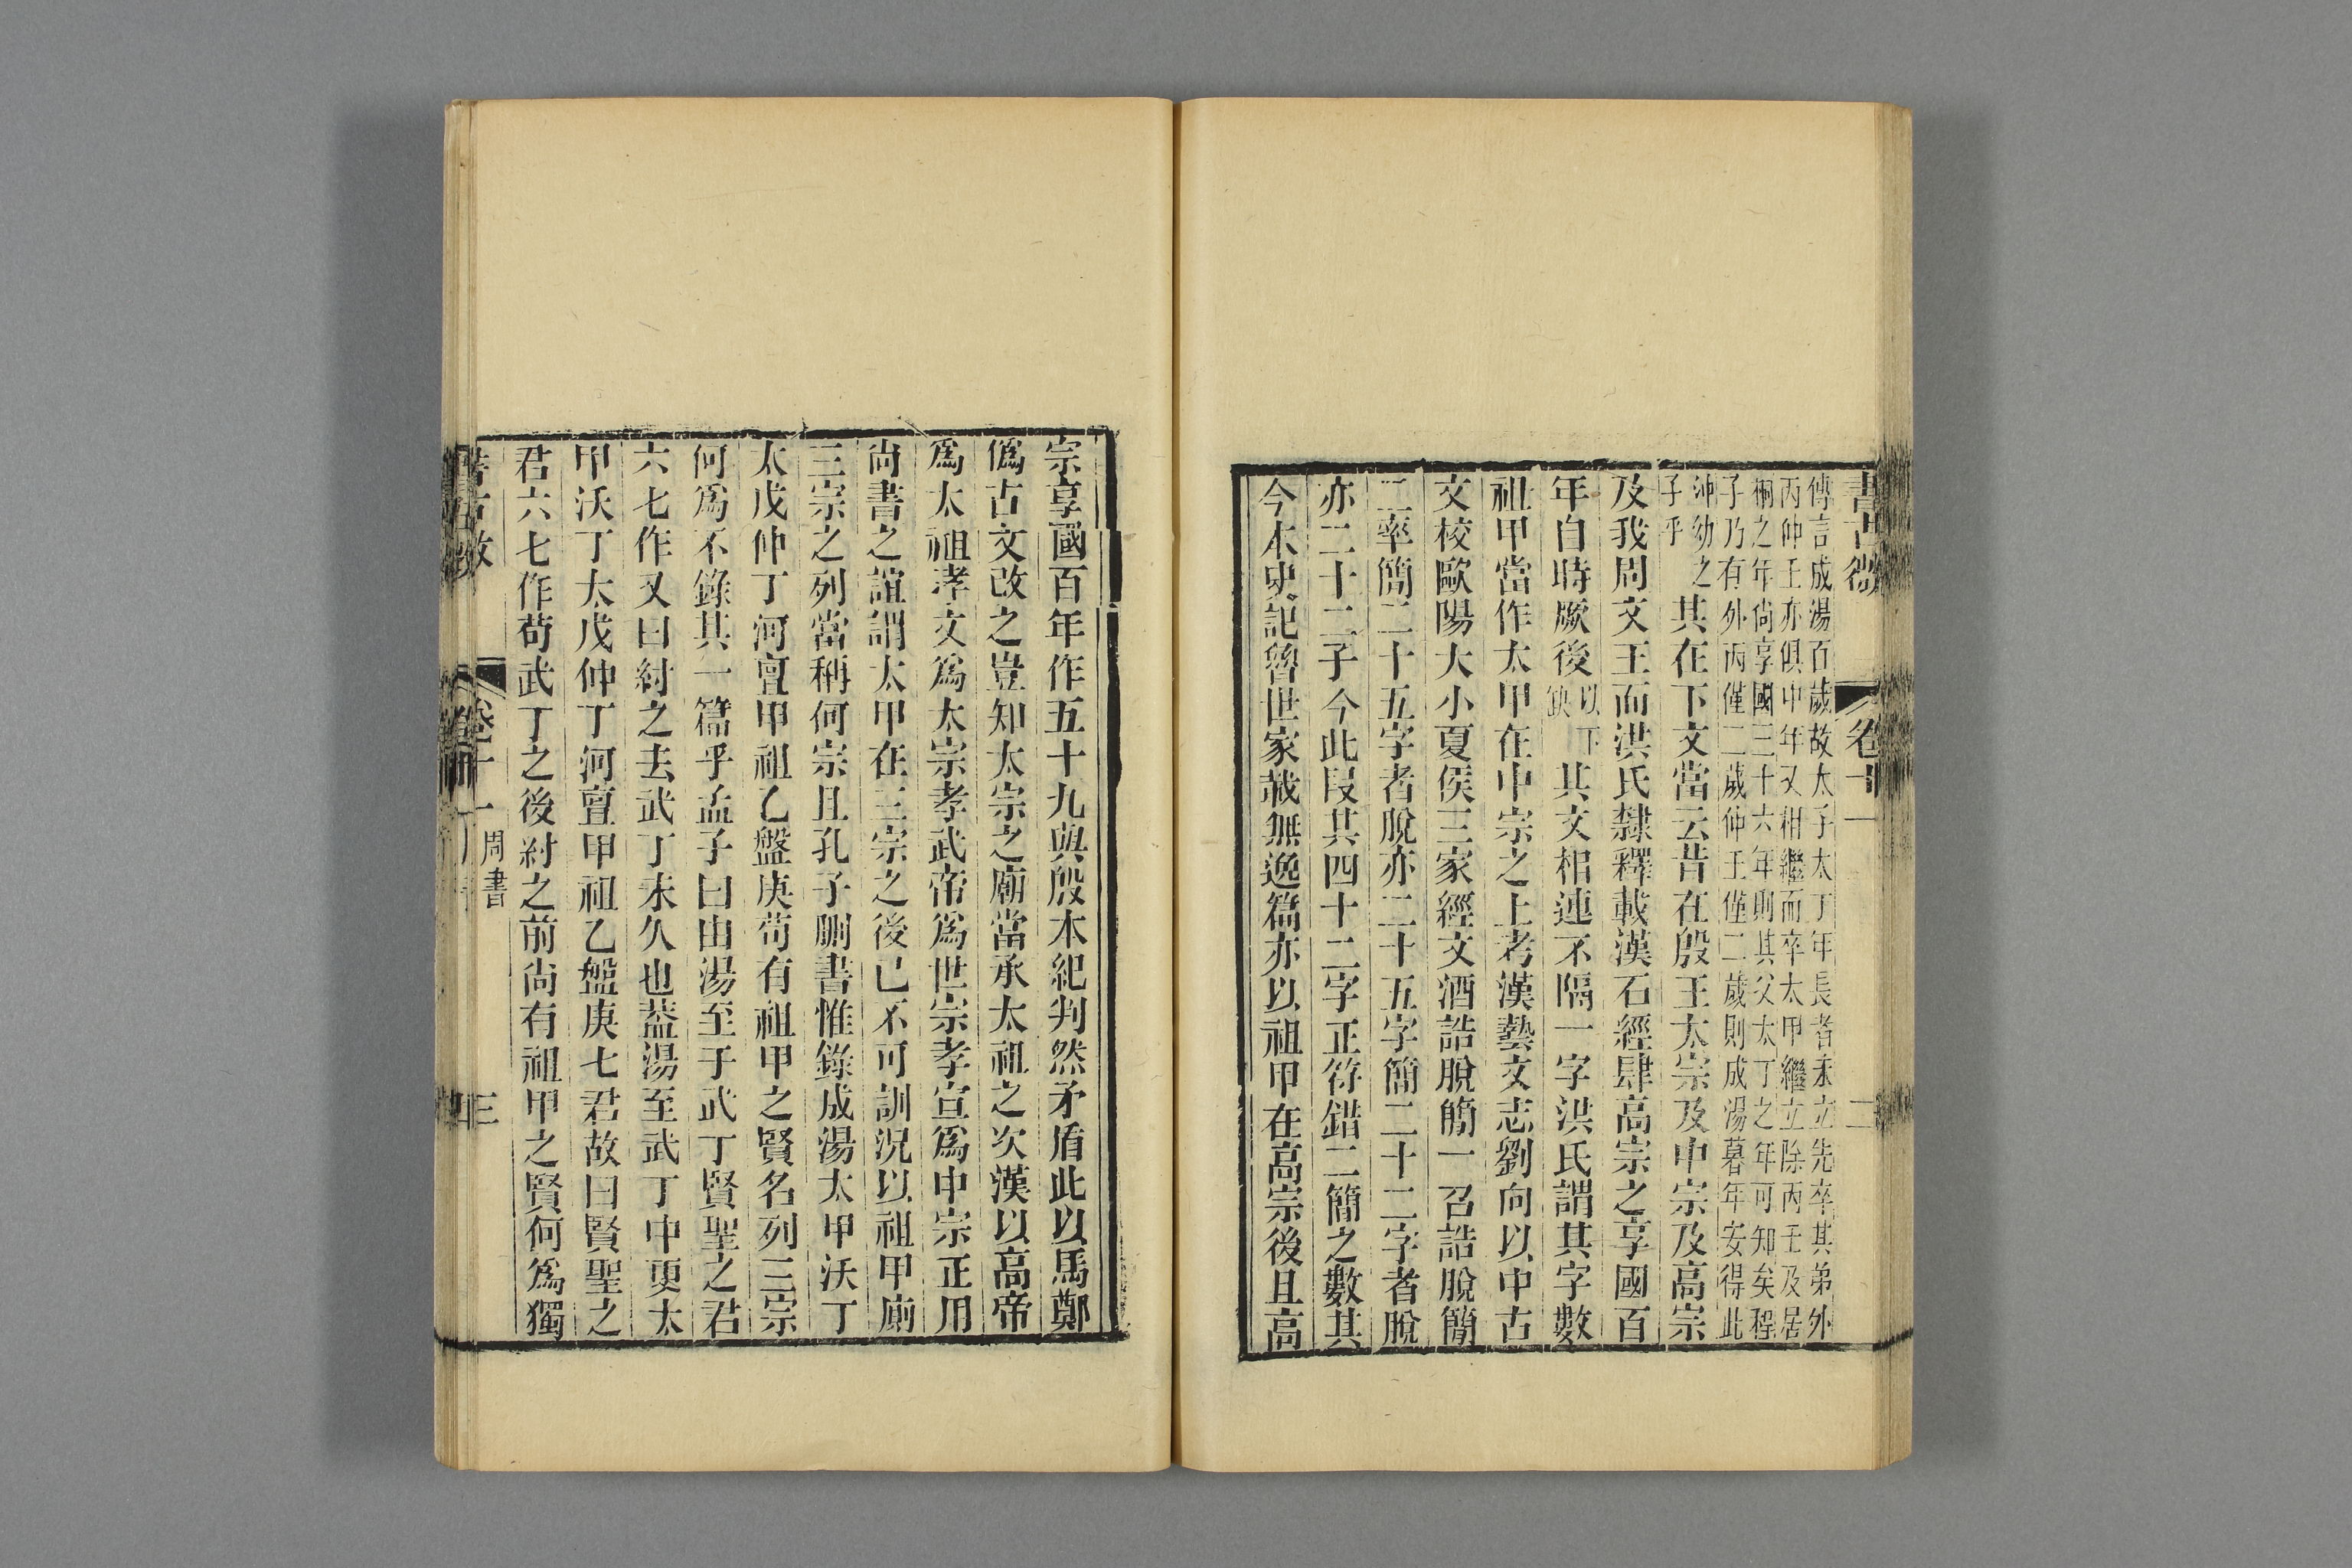 書古微 卷十一 二
傳言成湯百歲故太子太丁年長者未立先卒其弟外
丙仲壬亦俱中年又相繼而卒太甲繼立除丙壬及居
桐之年尚享國三十六年則其父太丁之年可知矣程
子乃有外丙僅二歲仲壬僅二歲則成湯暮年安得此
沖幼之
子乎
其在下文當云昔在殷王太宗及中宗及高宗
及我周文王而洪氏隸釋載漢石經肆高宗之享國百
年自時厥後以下缺其文相連不隔一字洪氏謂其字數
祖甲當作太甲在中宗之上考漢藝文志劉向以中古
文校歐陽大小夏侯三家經文酒誥脫簡一召誥脫簡
二率簡二十五字者脫亦二十五字簡二十二字者脫
亦二十二子今此段其四十二字正符錯二簡之數其
今本史記魯世家載無逸篇亦以祖甲在高宗後且高
宗享國百年作五十九與殷本紀判然矛盾此以馬鄭
僞古文改之豈知太宗之廟當承太祖之次漢以高帝
爲太祖孝文爲太宗孝武帝爲世宗孝宣爲中宗正用
尚書之誼謂太甲在三宗之後已不可訓況以祖甲廁
三宗之列當稱何宗且孔子刪書惟錄成湯太甲沃丁
太戊仲丁河亶甲祖乙盤庚苟有祖甲之賢名列三宗
何爲不錄其一篇乎孟子曰由湯至于武丁賢聖之君
六七作又曰紂之去武丁未久也葢湯至武丁中更太
甲沃丁太戊仲丁河亶甲祖乙盤庚七君故曰賢聖之
君六七作苟武丁之後紂之前尚有祖甲之賢何爲獨
書古微 卷十一 周書 三